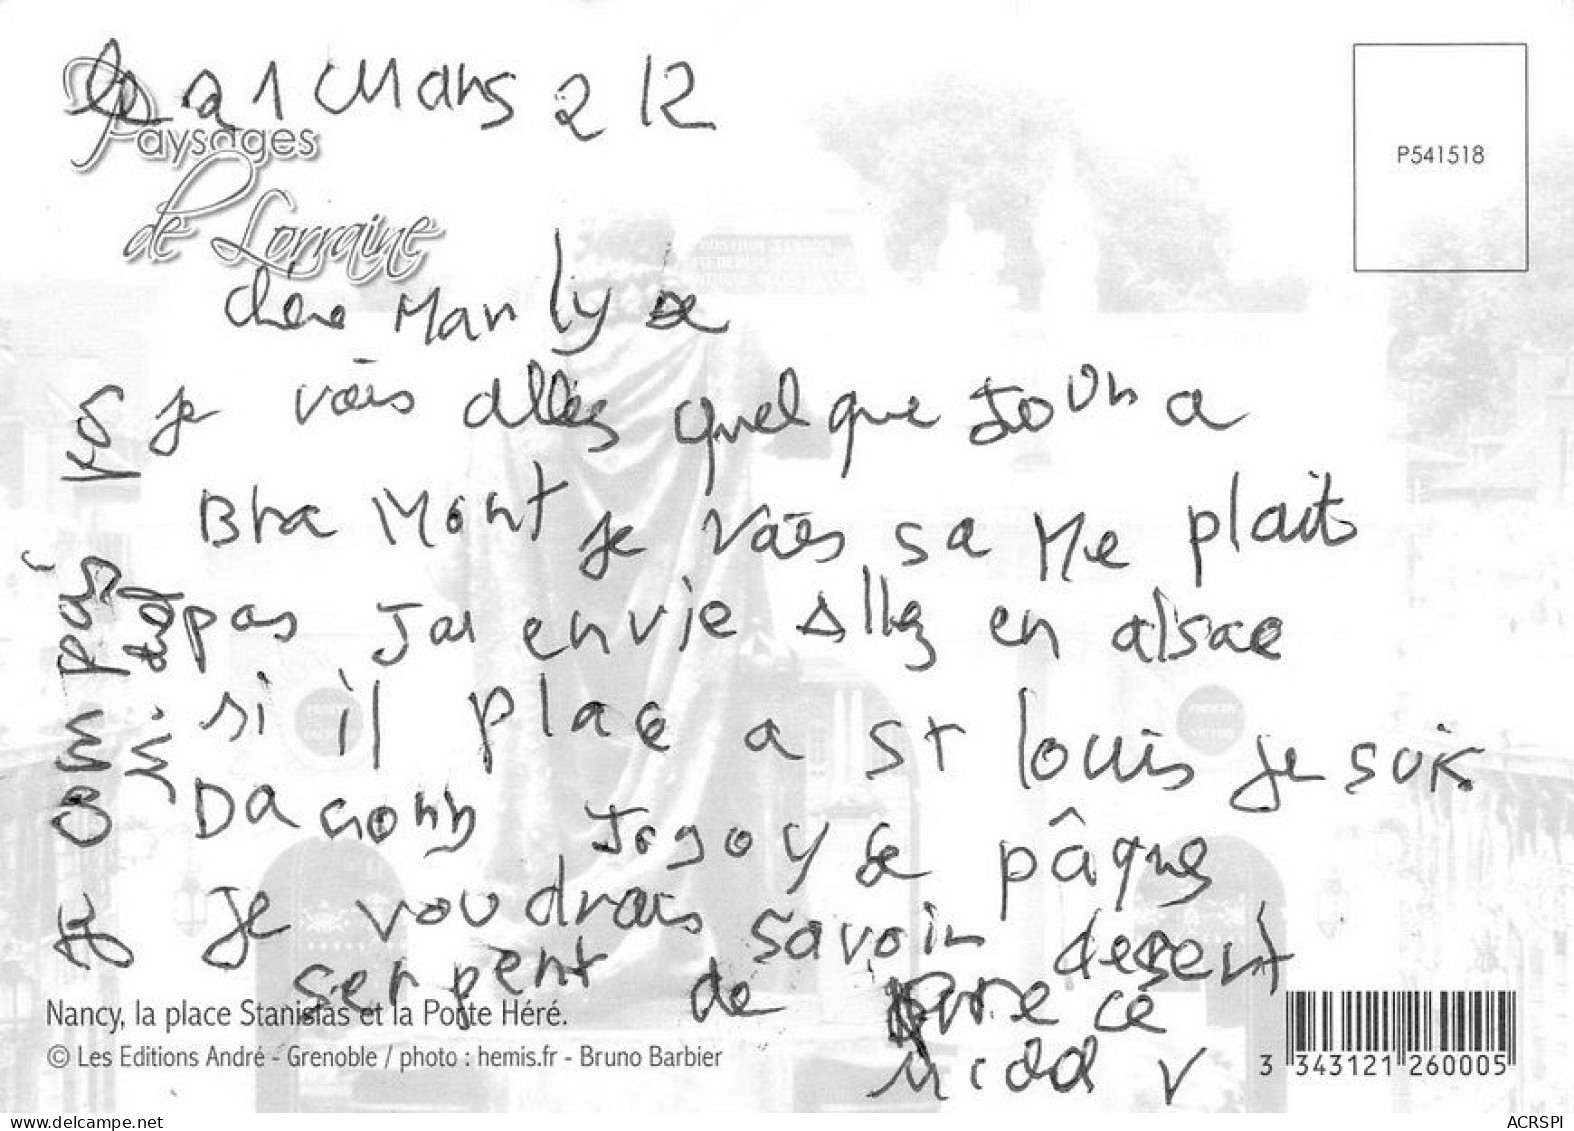 le 21 Mars 212
Paysages
de Lorraine
P541518
chère Marilyse
je vais allez quelque Jour a
Bra Mont je vais sa Me plait
pas Jai envie Allez en alsace
si il place a St louis je suis
Dacorr Jogoyse pâques
Je voudrais savoir desert
serpent de
ce
V
Je compas
Nancy, la place Stanislas et la Porte Héré.
© Les Editions André - Grenoble / photo : hemis.fr - Bruno Barbier
3 343121 260005
www.delcampe.net
ACRSPI